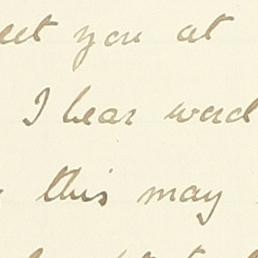 you at
I hear word
this may